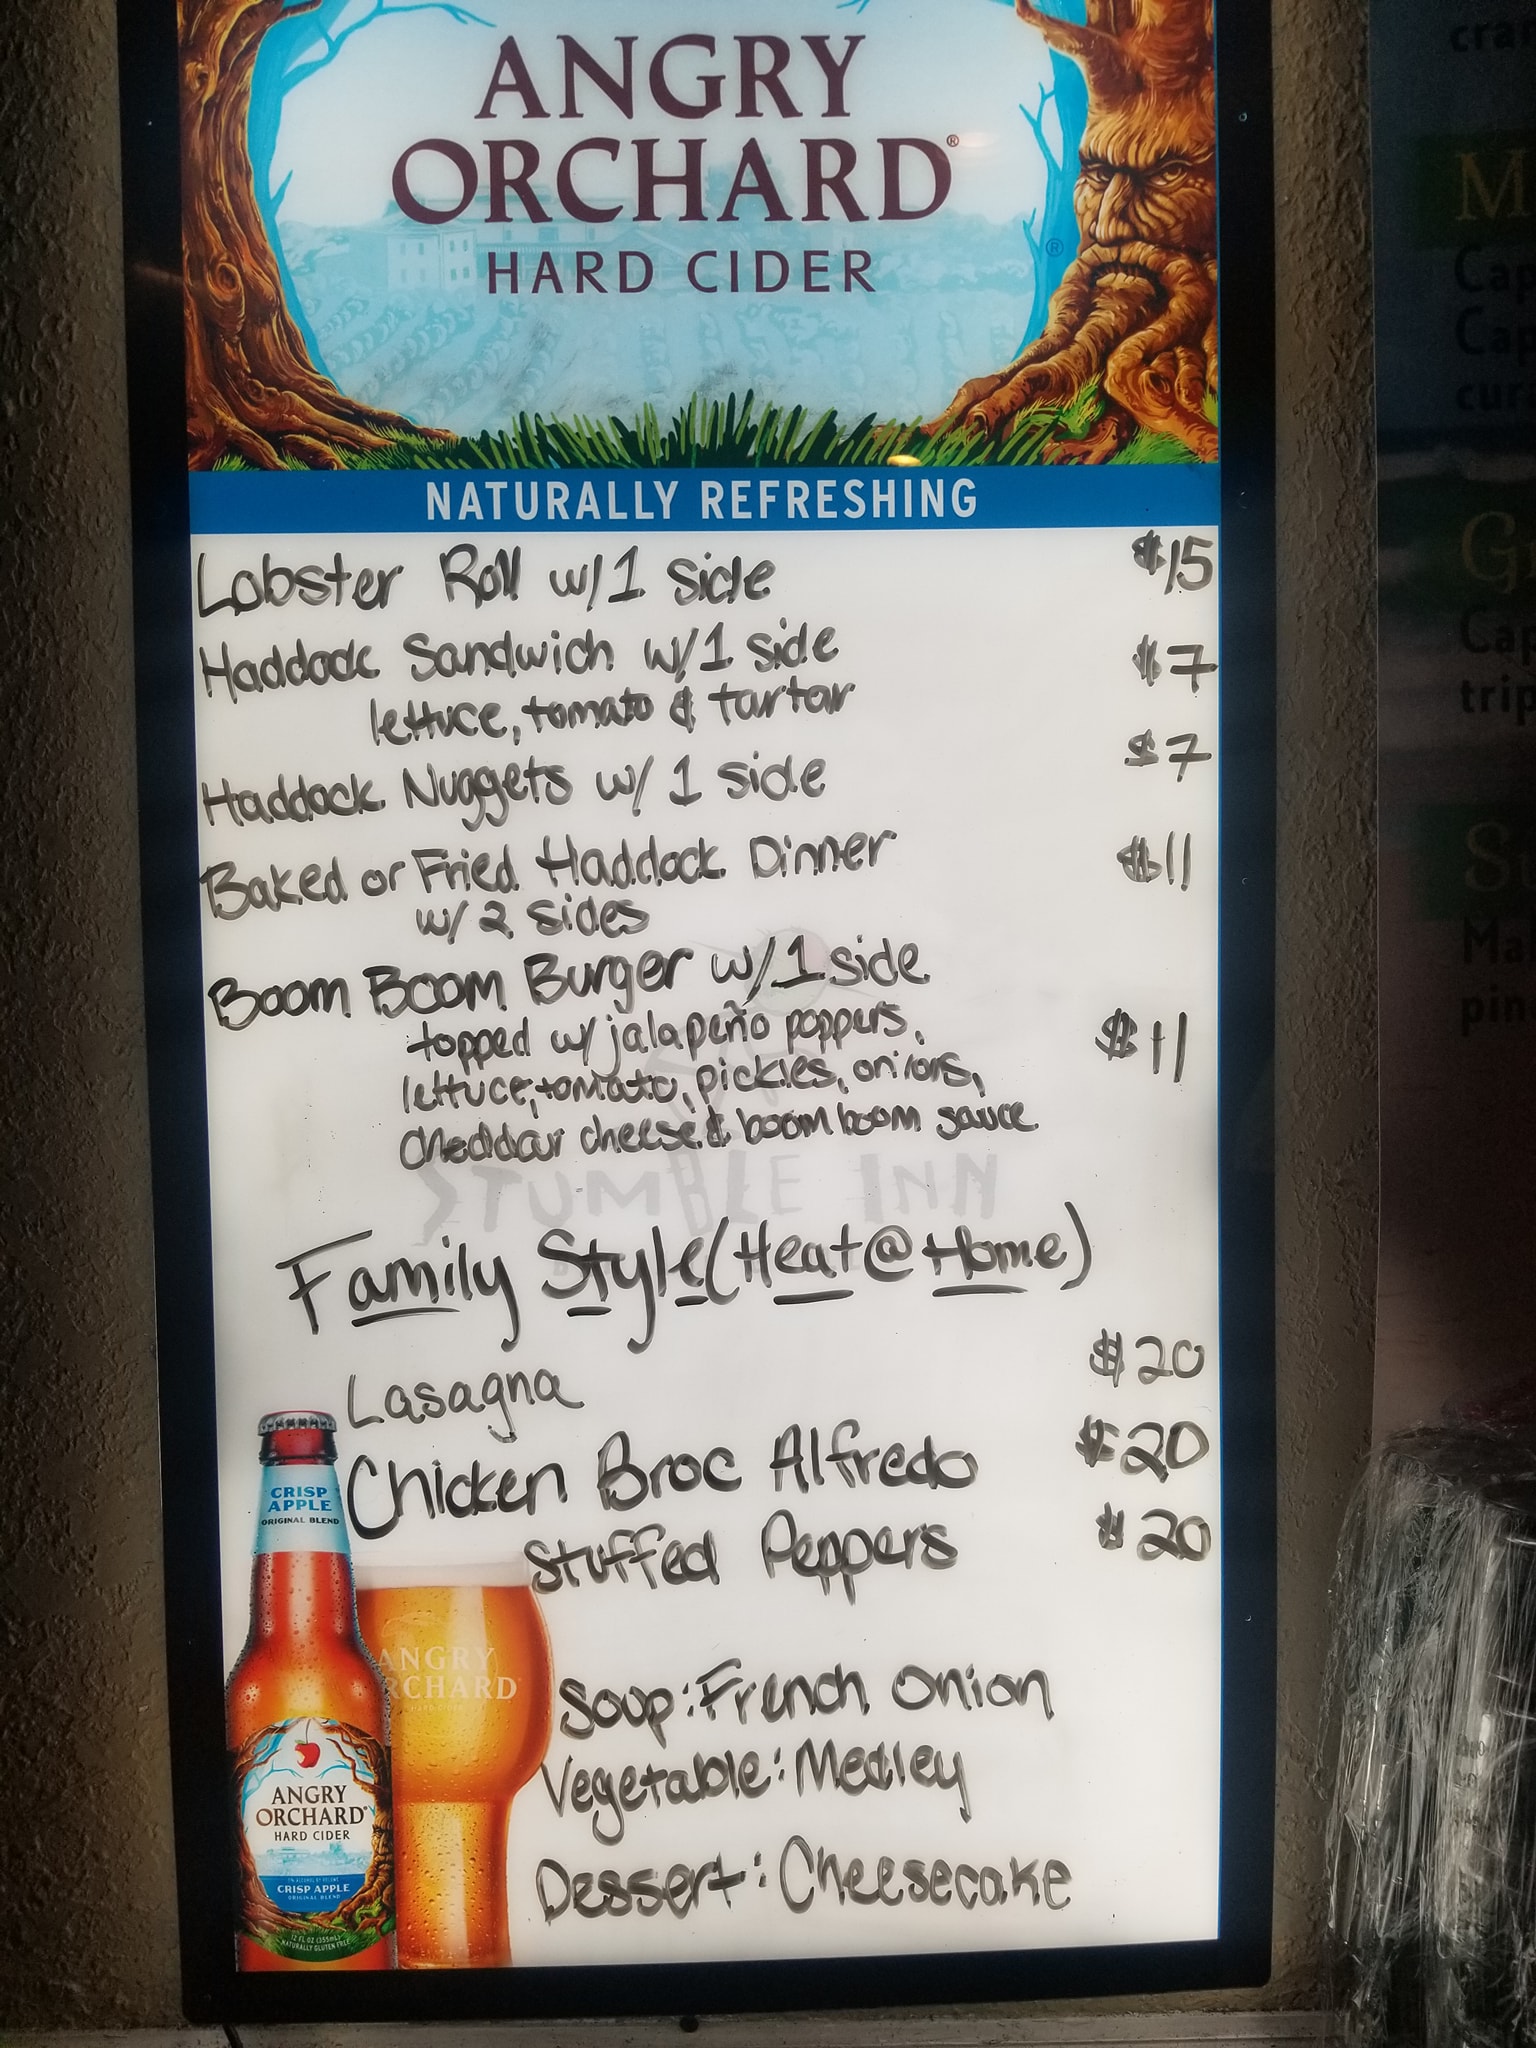 ANGRY
ORCHARD®
HARD CIDER
®
NATURALLY REFRESHING
Lobster Roll w/1 side $15
Haddock Sandwich w/1 side $7
lettuce, tomato & tartar
Haddock Nuggets w/ 1 side $7
Baked or Fried Haddock Dinner $11
w/ 2 sides
Boom Boom Burger w/1 side
topped w/ jalapeño poppers, $11
lettuce, tomato, pickles, onions,
cheddar cheese & boom boom sauce
STUMBLE INN
Family Style (Heat @ Home)
Lasagna $20
Chicken Broc Alfredo $20
Stuffed Peppers $20
Soup: French Onion
Vegetable: Medley
Dessert: Cheesecake
CRISP
APPLE
ORIGINAL BLEND
ANGRY
RCHARD
HARD CIDER
ANGRY
ORCHARD®
HARD CIDER
CRISP APPLE
ORIGINAL BLEND
12 FL OZ (355mL)
NATURALLY GLUTEN FREE
cra
M
Cap
Cap
cur
G
Cap
trip
S
Ma
pin